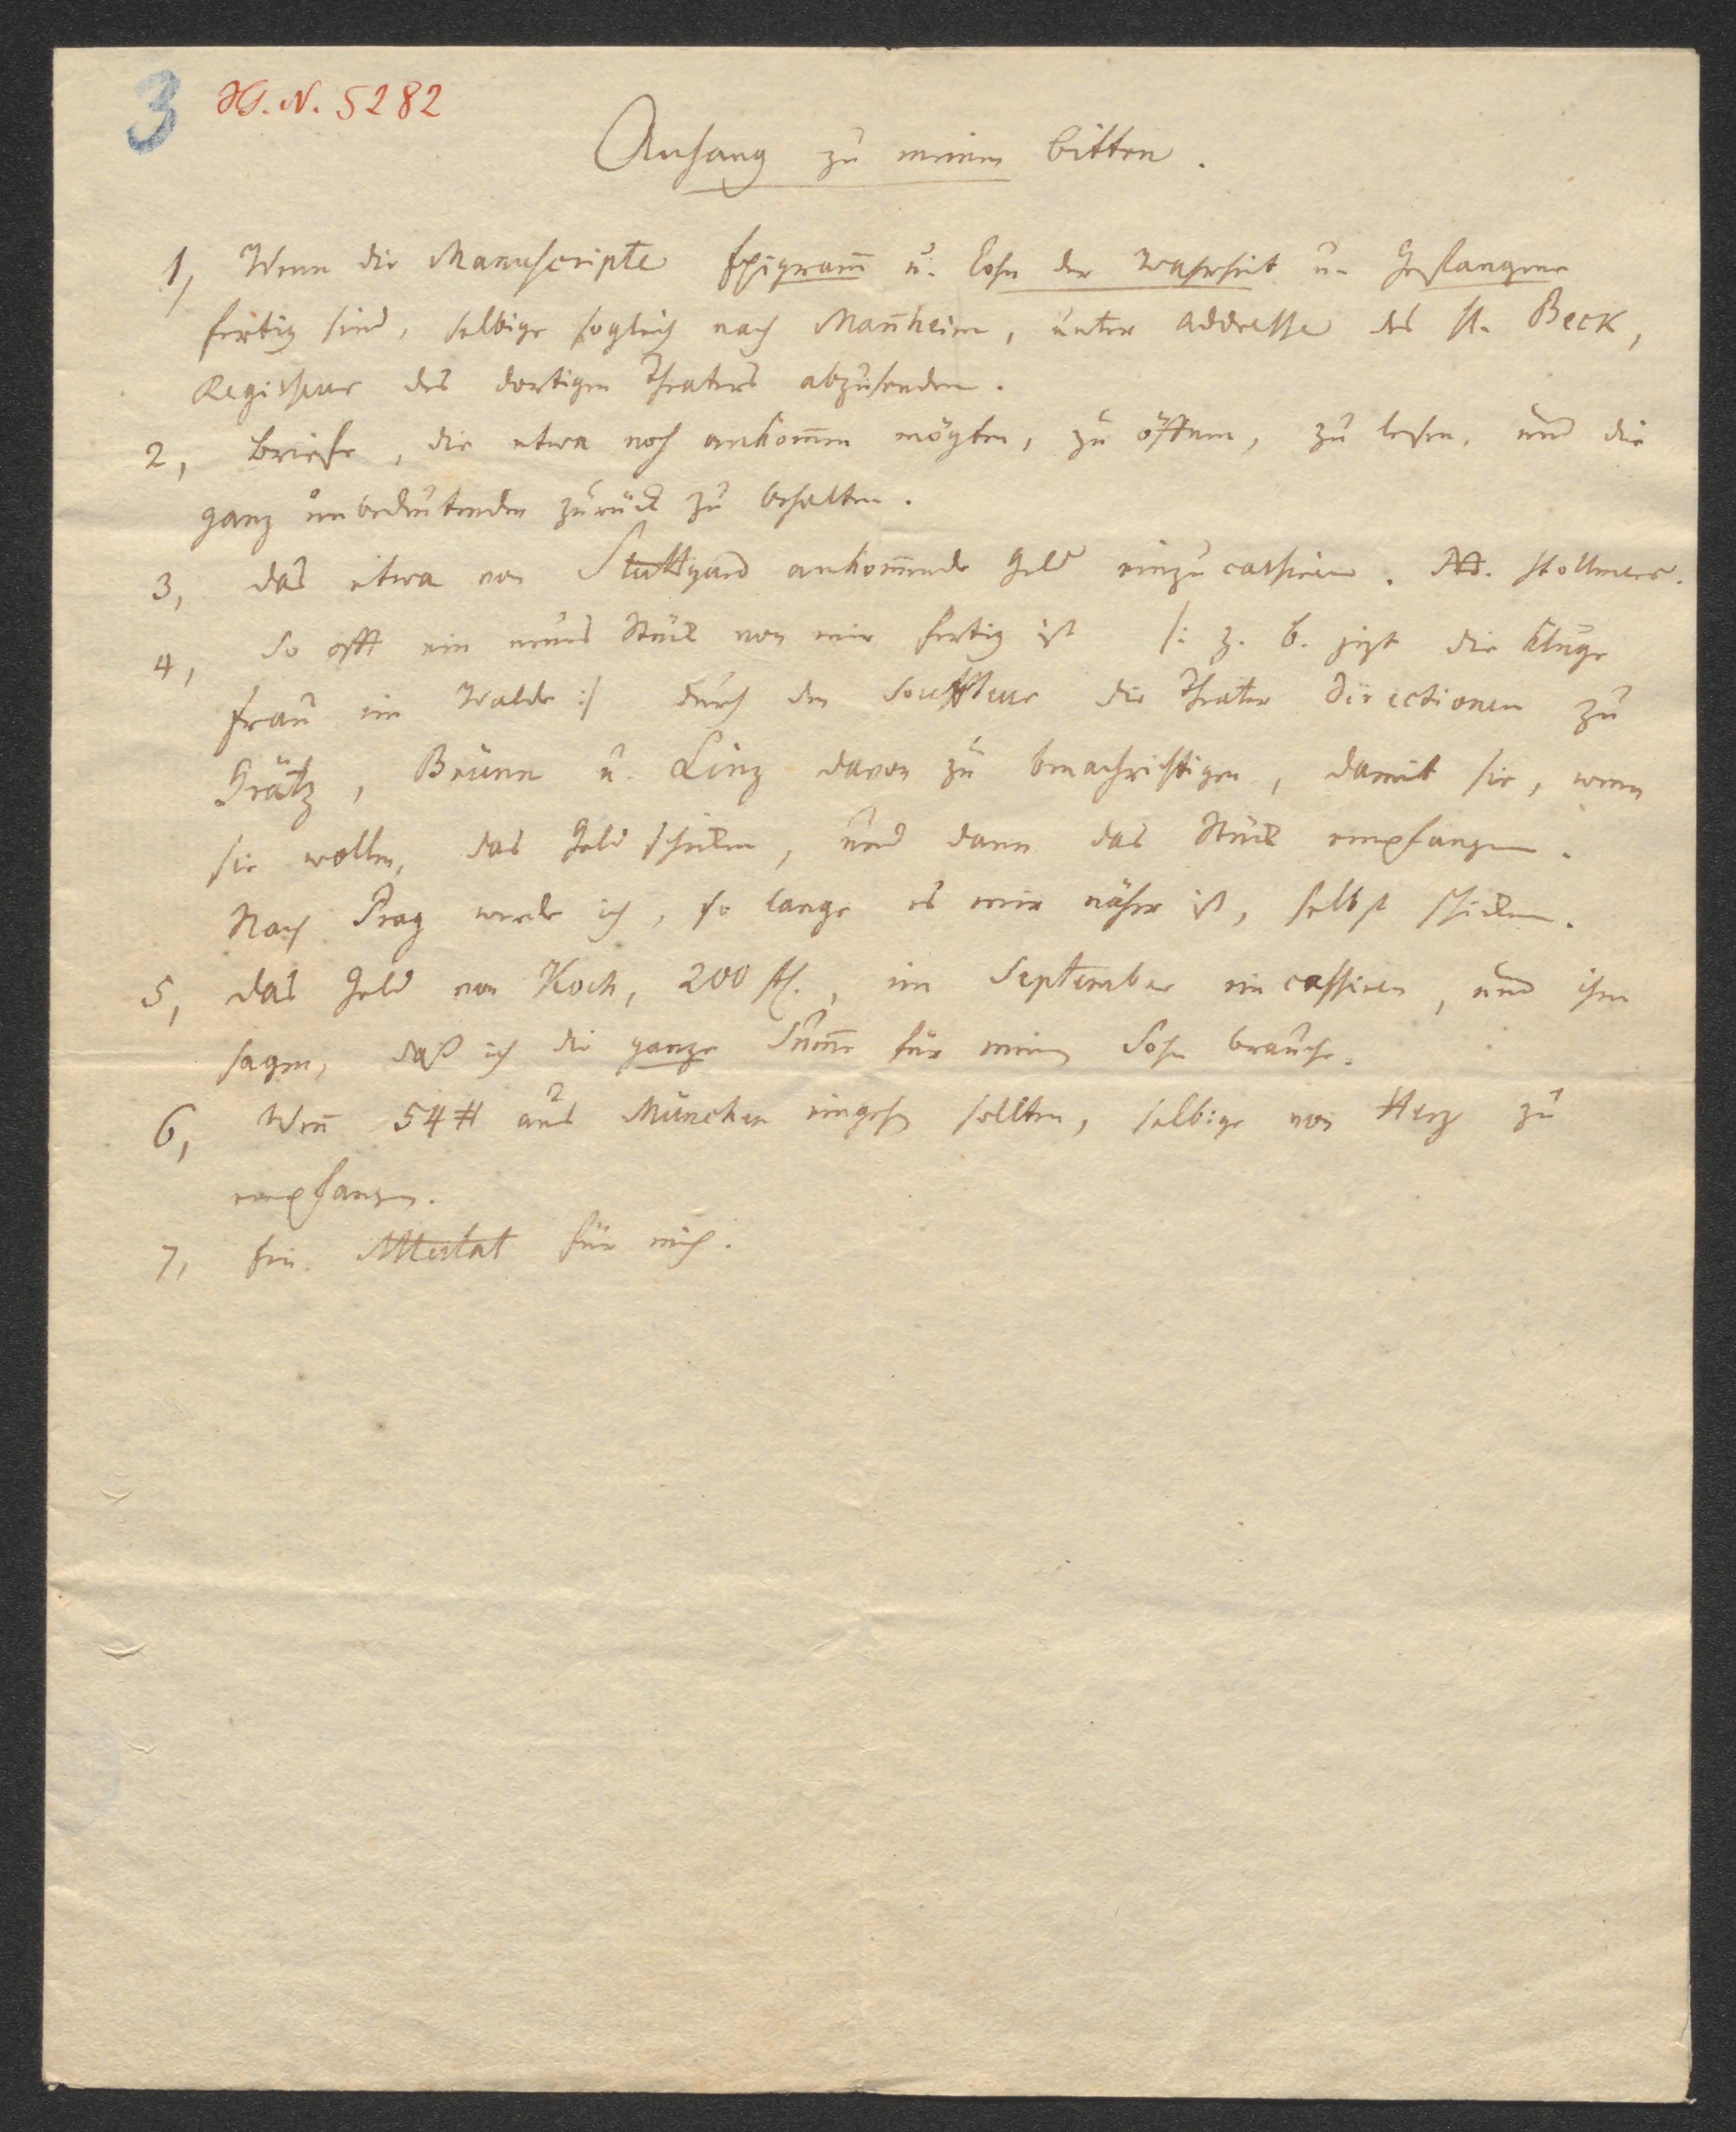 3 H. N. 5282
Anhang zu meinen bitten.
1, Wenn die Manuscripte Epigram̅ u. Lohn der Wahrheit u. Gefangene
fertig sind, selbige sogleich nach Man̅heim, unter Addresse des H. Beck,
Regisseur des dortigen Theaters abzusenden.
2, Briefe, die etwa noch ankom̅en mögten, zu öffnen, zu lesen, und die
ganz unbedeutenden zurück zu behalten.
3, das etwa von Stuttgard ankom̅ende Geld einzucassiren. Stollmers.
4, So oft ein neues Stück von mir fertig ist /: z. b. jezt die kluge
Frau im Walde :/ durch den Souffleur die Theater Directionen zu
Grätz, Brünn u. Linz davon zu benachrichtigen, damit sie, wenn
sie wollen, das Geld schicken, und dann das Stück empfangen.
Nach Prag werde ich, so lange es mir näher ist, selbst schicken.
5, das Geld von Koch, 200 fl., im September ein cassiren, und ihm
sagen, daß ich die ganze Sum̅e für meinen Sohn brauche.
6, Wen̅ 54 # aus München eingehen sollten, selbige von Herz zu
empfangen.
7, Ein Attestat für mich.